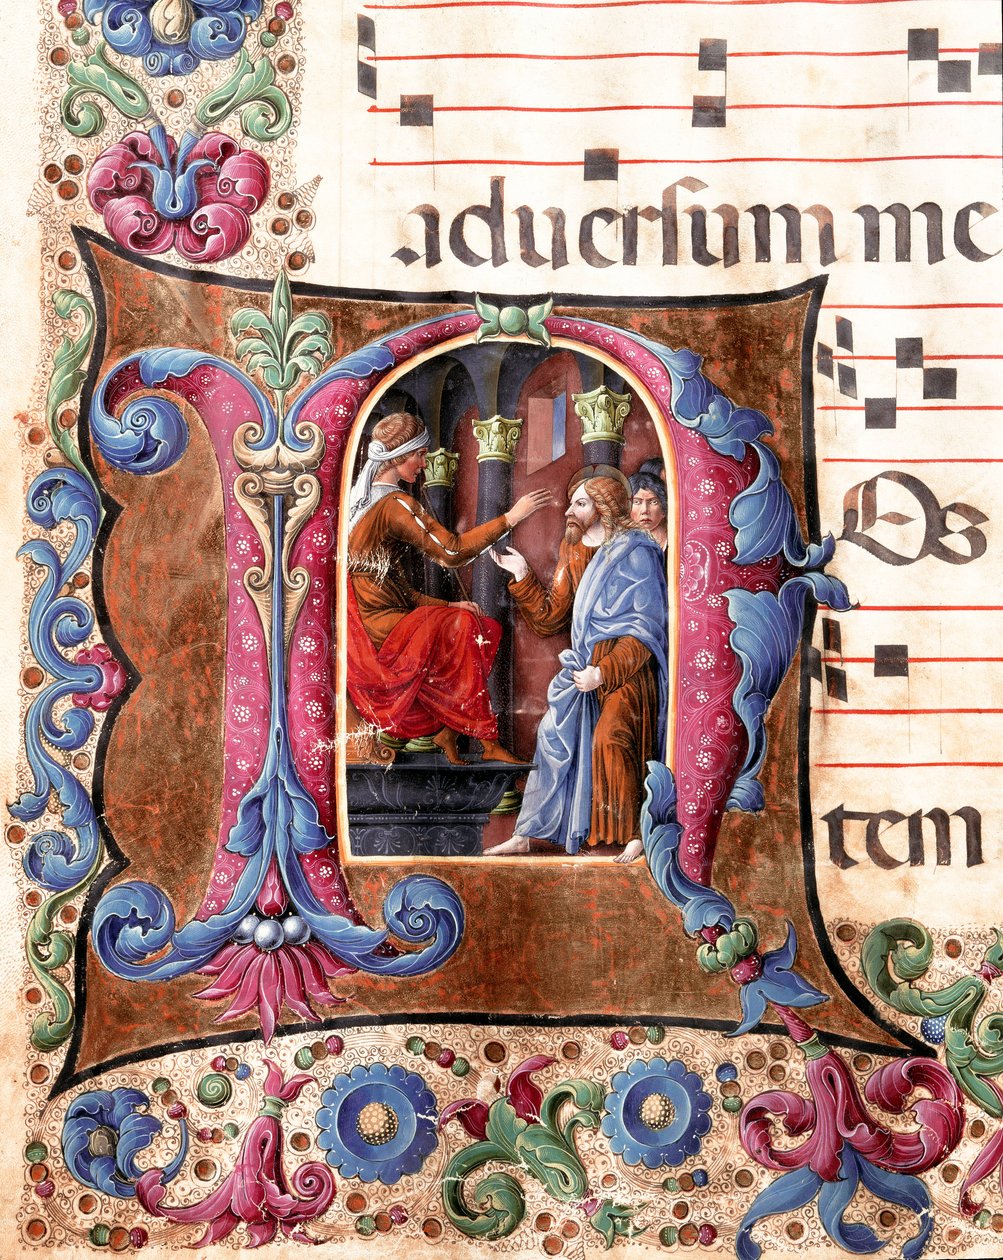 aduerſum me
NOs
tem